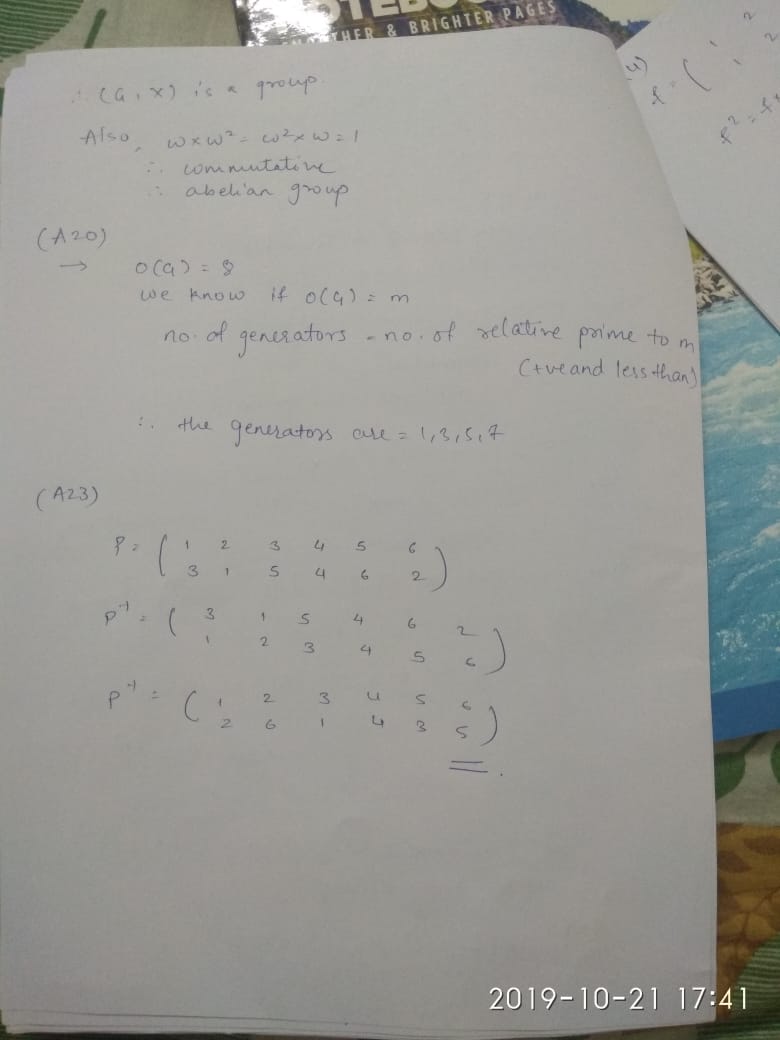 OTEBO
THER & BRIGHTER PAGES
∴ (G, x) is a group.
Also, w x w² = w² x w = 1
∴ commutative
∴ abelian group
(A20)
→ O(G) = 8
we know if O(G) = m
no. of generators = no. of relative prime to m
(+ve and less than)
∴ the generators are = 1, 3, 5, 7
(A23)
P = ( 1 2 3 4 5 6
3 1 5 4 6 2 )
P⁻¹ = ( 3 1 5 4 6 2
1 2 3 4 5 6 )
P⁻¹ = ( 1 2 3 4 5 6
2 6 1 4 3 5 )
2019-10-21 17:41